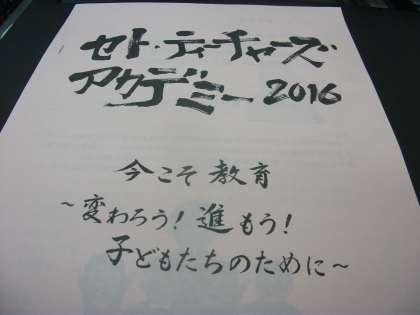 セト・ティーチャーズ・
アカデミー 2016
今こそ 教育
～変わろう！進もう！
子どもたちのために～